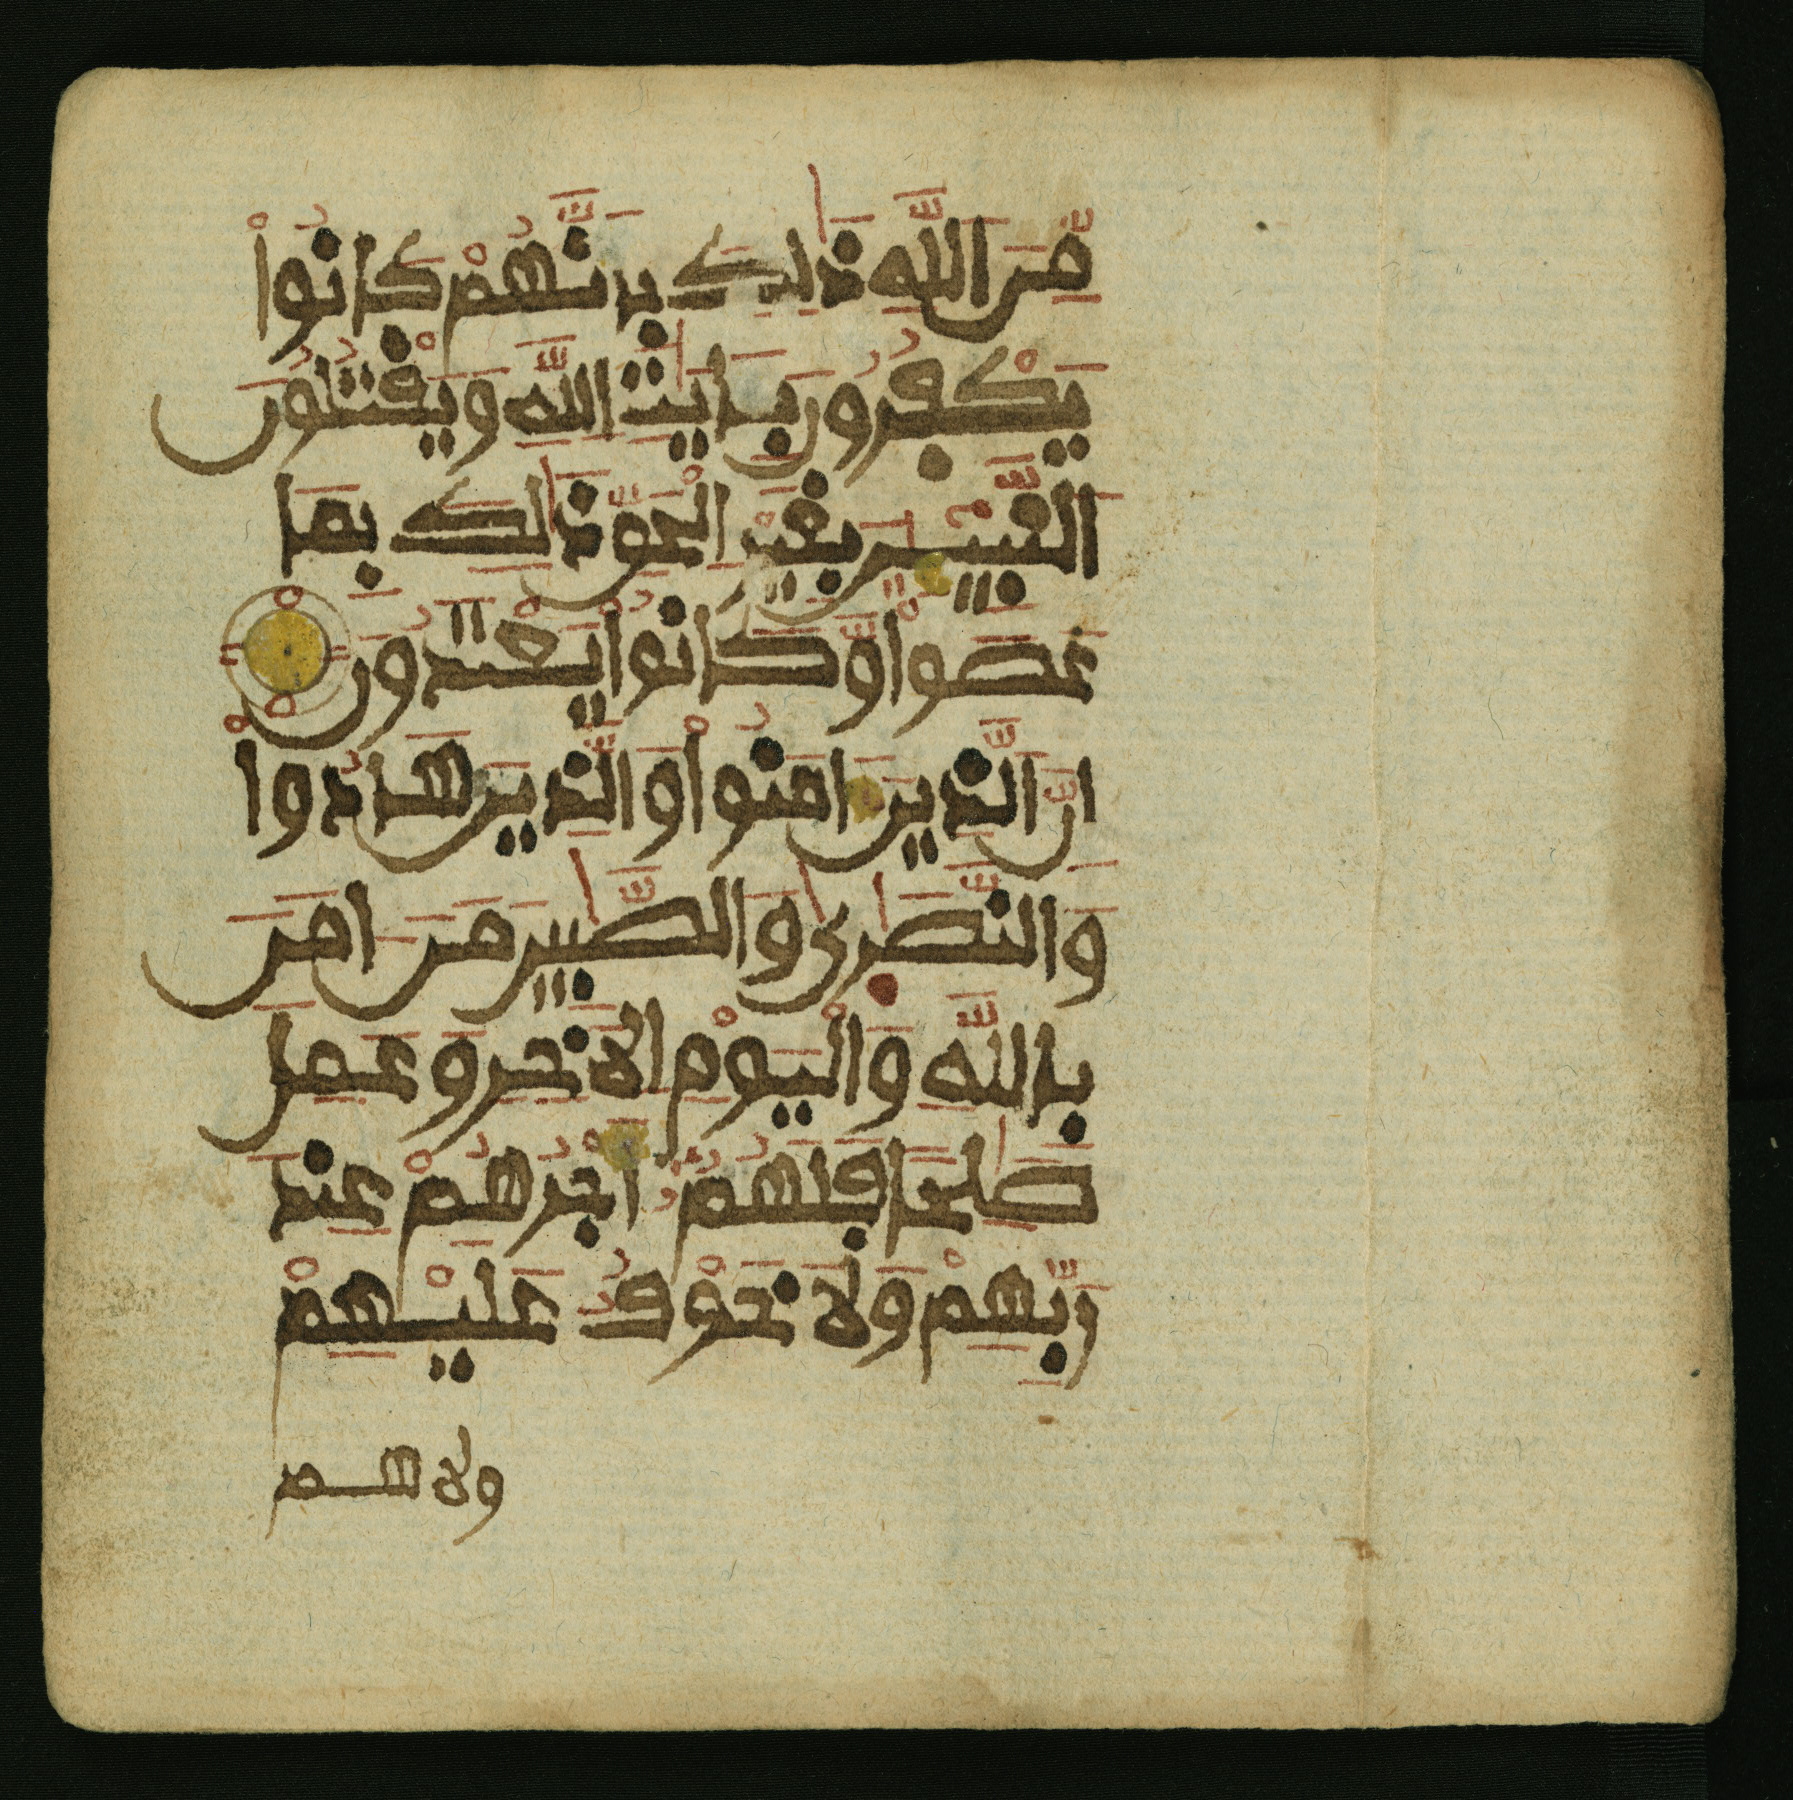 مِّنَ اللَّهِ ذَٰلِكَ بِأَنَّهُمْ كَانُواْ
يَكْفُرُونَ بِـَٔايَٰتِ اللَّهِ وَيَقْتُلُونَ
النَّبِيِّـۧنَ بِغَيْرِ الْحَقِّ ذَٰلِكَ بِمَا
عَصَواْ وَّكَانُواْ يَعْتَدُونَ
إِنَّ الَّذِينَ ءَامَنُواْ وَالَّذِينَ هَادُواْ
وَالنَّصَٰرَىٰ وَالصَّٰبِينَ مَنَ ـامَنَ
بِاللَّهِ وَالْيَوْمِ الَاخِرِ وَعَمِلَ
صَٰلِحًا فَلَهُمُۥٓ أَجْرُهُمْ عِندَ
رَبِّهِمْ وَلَا خَوْفٌ عَلَيْهِمْ
ولا هم